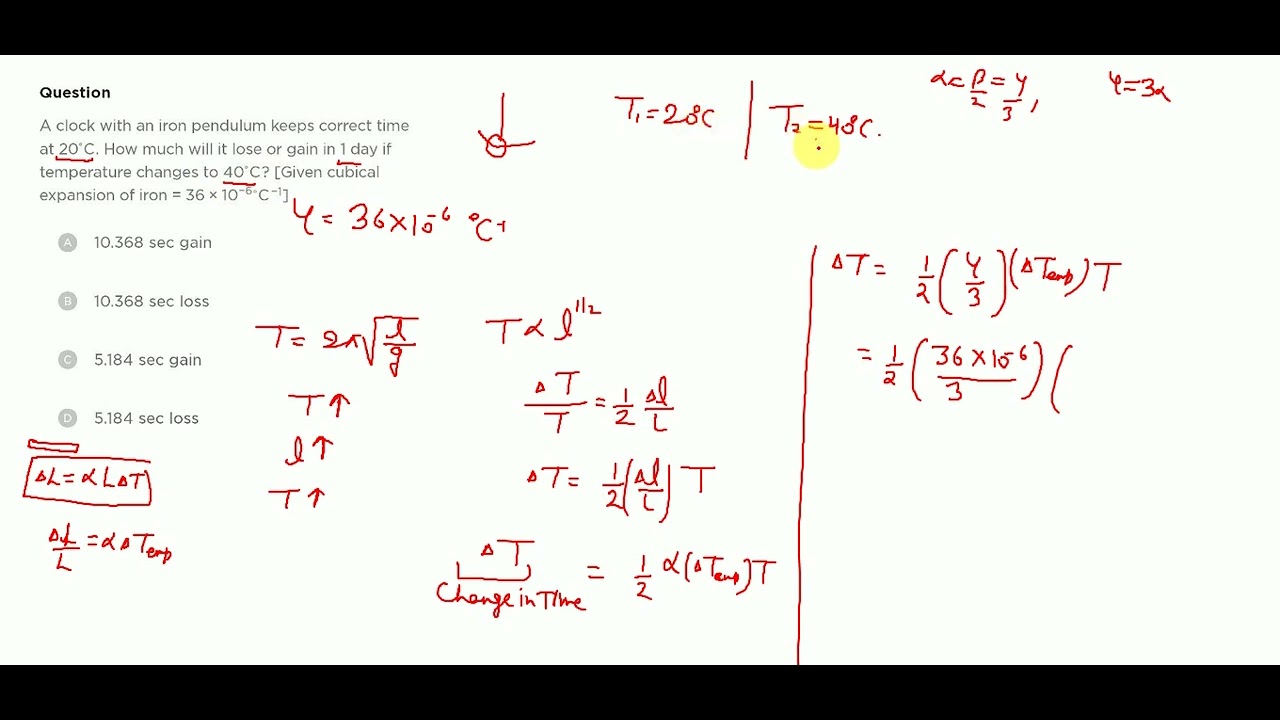 Question
A clock with an iron pendulum keeps correct time
at 20°C. How much will it lose or gain in 1 day if
temperature changes to 40°C? [Given cubical
expansion of iron = 36 × 10⁻⁶°C⁻¹]
γ = 36×10⁻⁶ °C⁻¹
A 10.368 sec gain
B 10.368 sec loss
C 5.184 sec gain
D 5.184 sec loss
ΔL = αLΔT
ΔL/L = αΔTemp
T = 2π√(l/g)
T↑
l↑
T↑
T ∝ l^1/2
ΔT/T = 1/2 Δl/L
ΔT = 1/2 (Δl/L) T
ΔT = 1/2 α(ΔTemp)T
Change in Time
T₁ = 20°C | T₂ = 40°C.
α = β/2 = γ/3, γ = 3α
ΔT = 1/2 (γ/3)(ΔTemp)T
= 1/2 (36×10⁻⁶/3) (